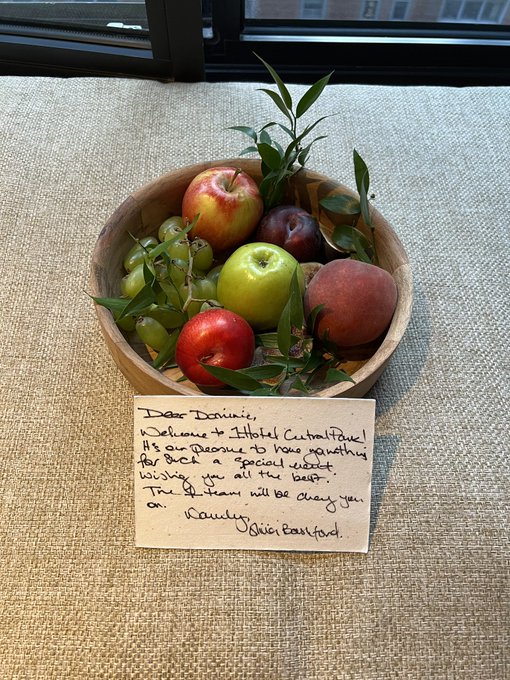 Dear Dominic,
Welcome to 1Hotel Central Park!
It's our pleasure to have you with us
for such a special event.
Wishing you all the best.
The team will be cheering you
on.
Warmly,
Bashford.